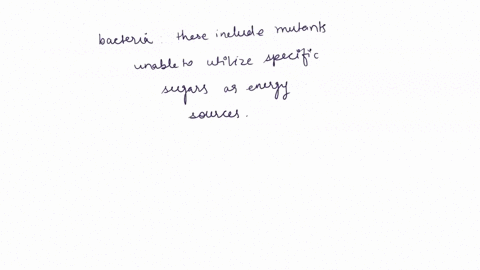 bacteria : these include mutants
unable to utilize specific
sugars as energy
sources.